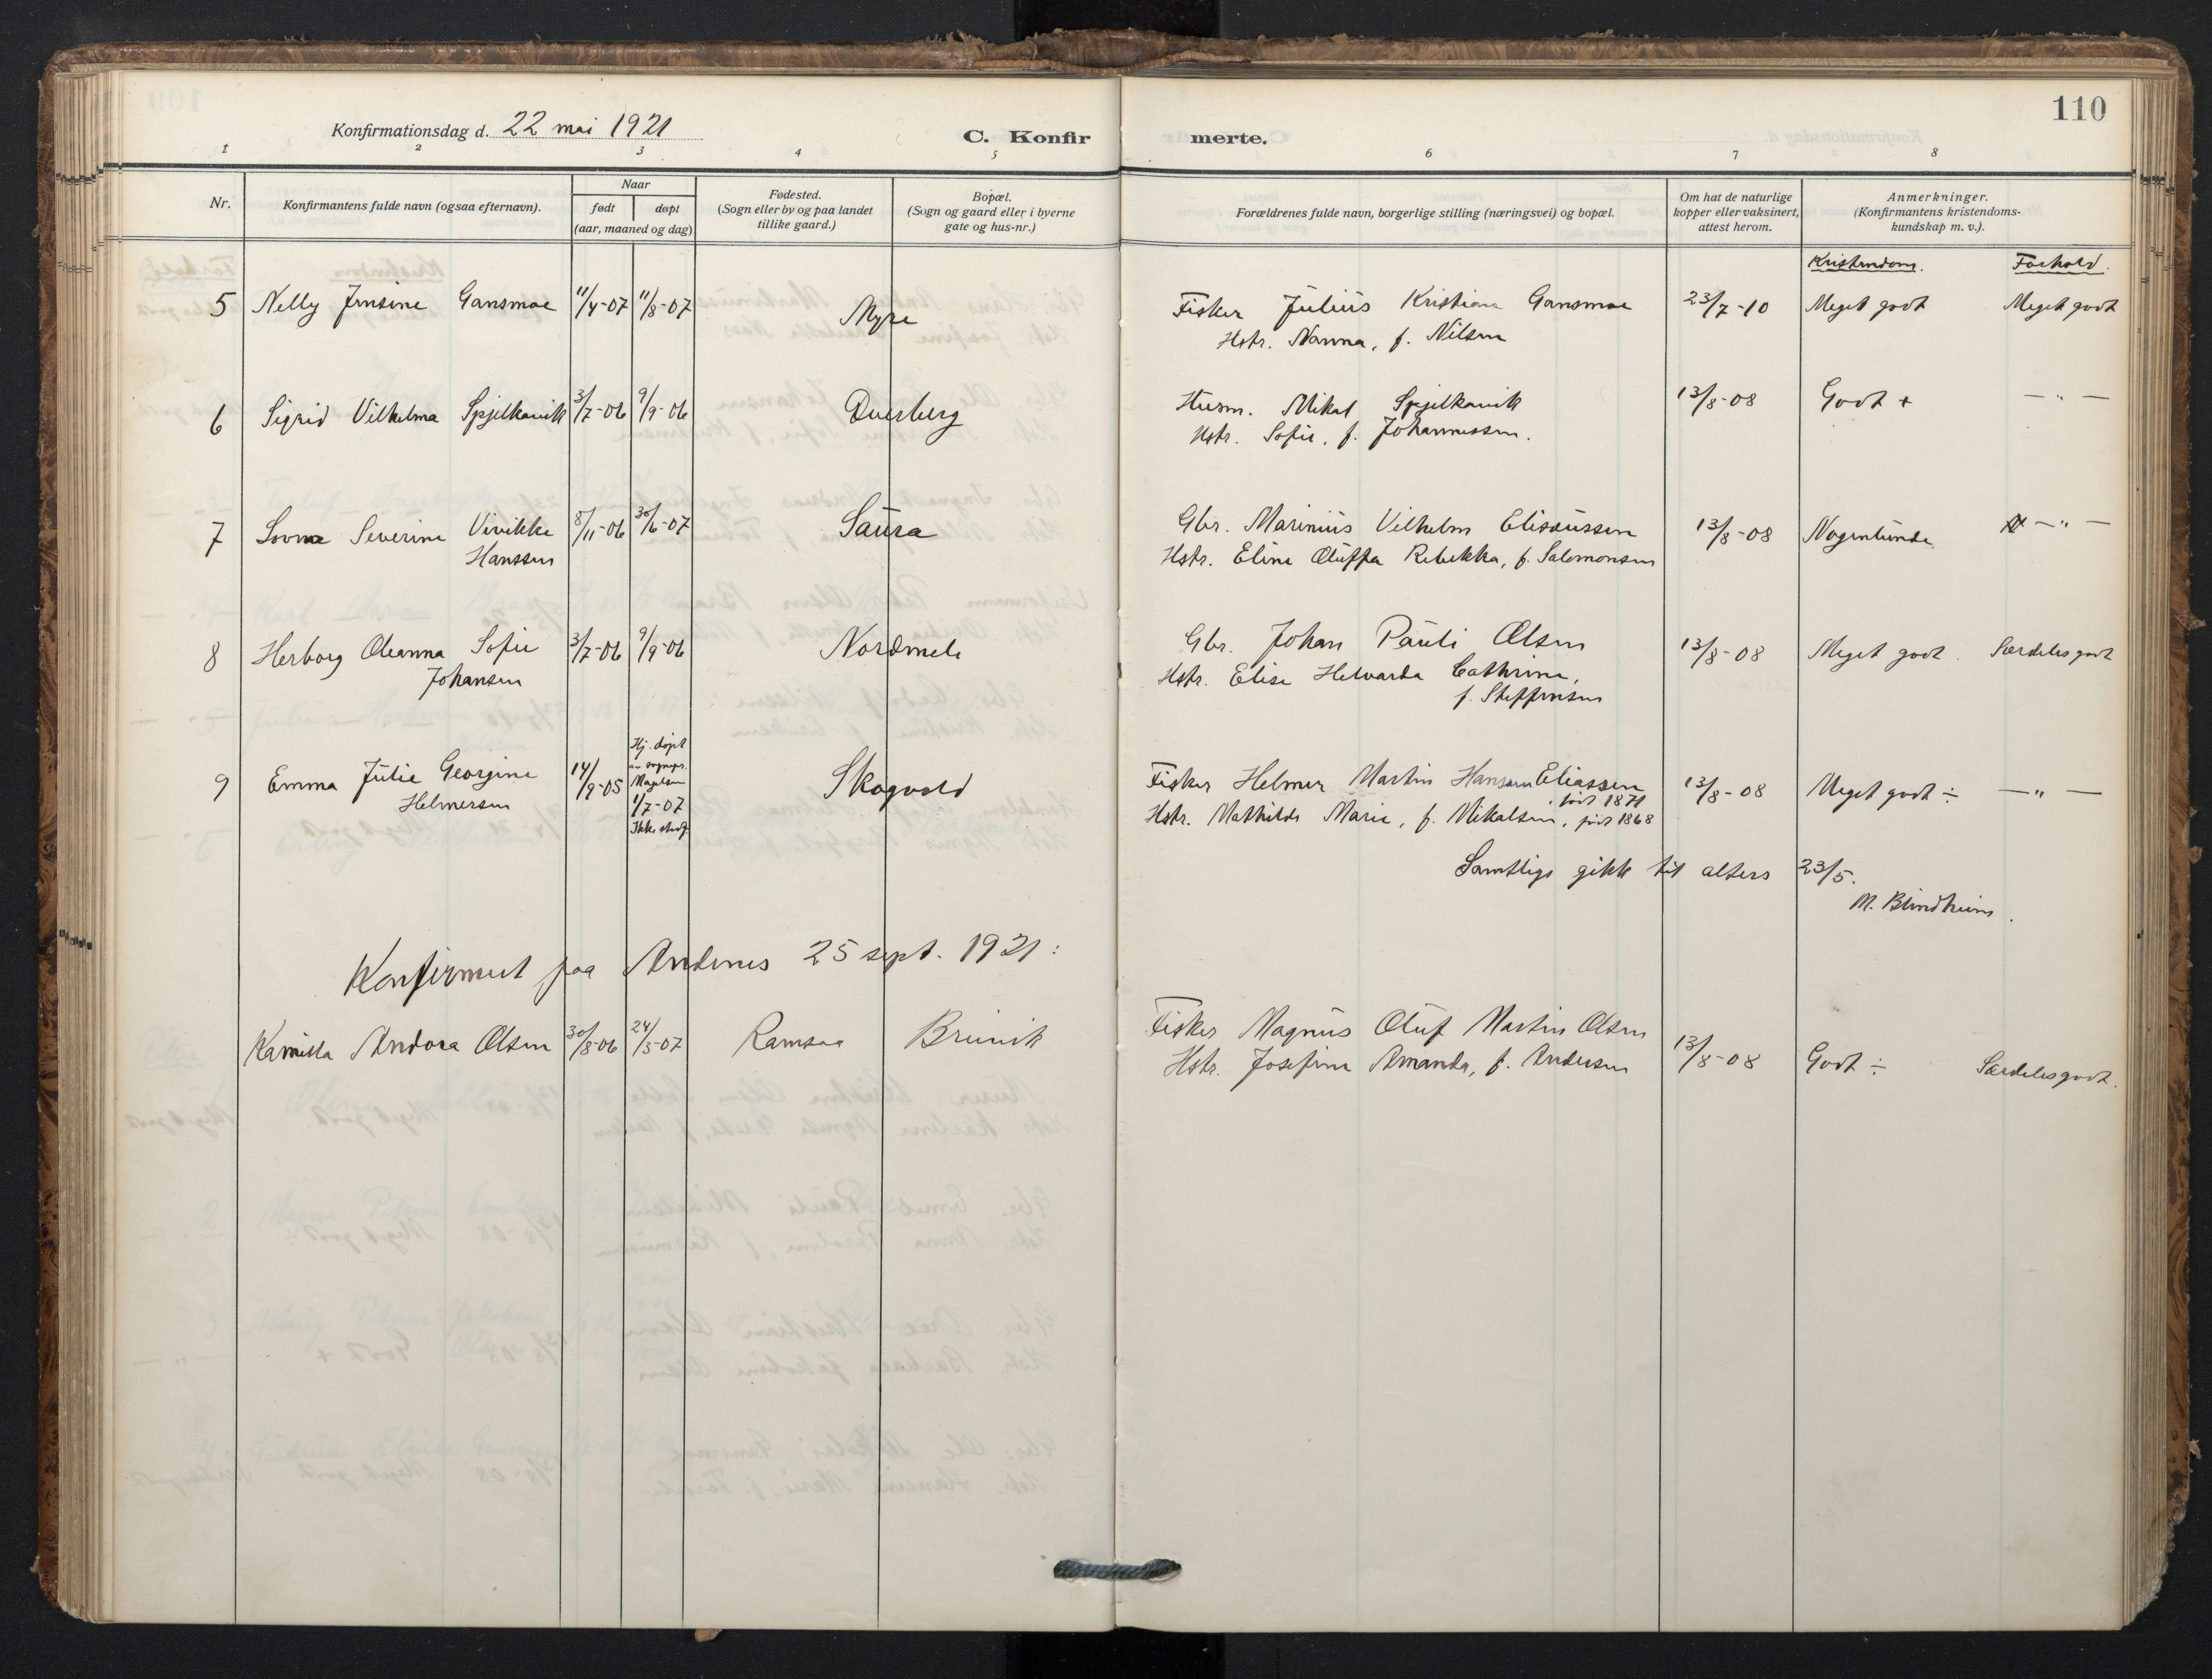 110
Konfirmationsdag d. 22 mai 1921
C. Konfirmerte.
1 2 3 4 5 6 7 8
Nr.
Konfirmantens fulde navn (ogsaa efternavn).
Naar
født døpt
(aar, maaned og dag)
Fødested.
(Sogn eller by og paa landet
tillike gaard.)
Bopæl.
(Sogn og gaard eller i byerne
gate og hus-nr.)
Forældrenes fulde navn, borgerlige stilling (næringsvei) og bopæl.
Om hat de naturlige
kopper eller vaksinert,
attest herom.
Anmerkninger.
(Konfirmantens kristendoms-
kundskap m. v.).
Kristendom. Forhold.
5 Nelly Jensine Gansmoe 11/4-07 11/8-07 Myre Fisker Julius Kristian Gansmoe 23/7-10 Meget godt Meget godt
Hstr. Nanna, f. Nilsen
6 Sigrid Vilhelma Spjelkavik 3/7-06 9/9-06 Dverberg Husm. Mikal Spjelkavik 13/8-08 Godt + — " —
Hstr. Sofie, f. Johannessen.
7 Severine Vivikke 8/11-06 30/6-07 Saura Gbr. Marinius Vilhelm Elisæussen 13/8-08 Nogenlunde — " —
Hanssen Hstr. Eline Oluffa Rebekka, f. Salomonsen
8 Herborg Oleanna Sofie 3/7-06 9/9-06 Nordmele Gbr. Johan Pauli Olsen 13/8-08 Meget godt. Særdeles godt
Johansen Hstr. Elise Helvarda Cathrine,
f. Steffensen
9 Emma Julie Georgine 14/9-05 Hj. døpt
av sognepr.
Magelsen
1/7-07
Ikke stadf.
Skogvold Fisker Helmer Martin Hansen Eliassen 13/8-08 Meget godt ÷ — " —
Helmersen født 1871
Hstr. Mathilde Marie, f. Mikalsen, født 1868
Samtlige gikk til alters 23/5.
M. Blindheim.
Konfirmert paa Andenes 25 sept. 1921:
Kamilla Andora Olsen 30/8-06 24/3-07 Ramsaa Breivik Fisker Magnus Oluf Martin Olsen 13/8-08 Godt ÷ Særdeles godt.
Hstr. Josefine Amanda, f. Andersen